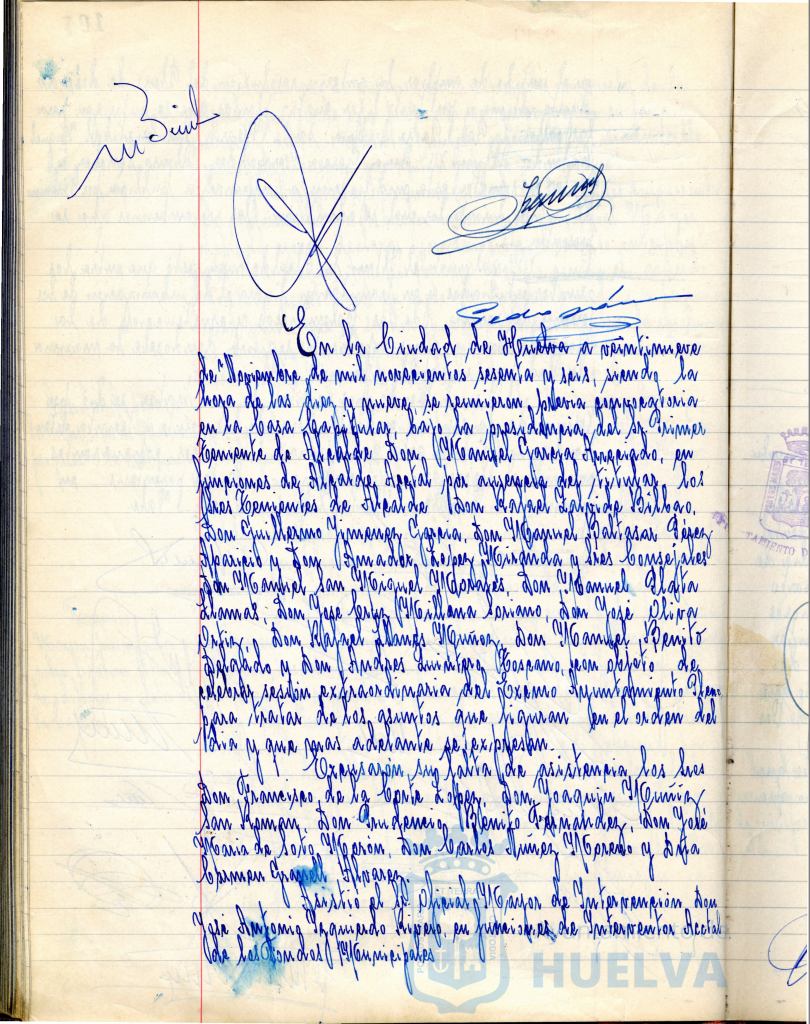 En la Ciudad de Huelva a veintinueve
de Noviembre de mil novecientos sesenta y seis, siendo la
hora de las diez y nueve, se reunieron, previa convocatoria
en la Casa Capitular, bajo la presidencia del Sr Primer
Teniente de Alcalde Don Manuel Garcia Anguiado, en
funciones de Alcalde Acctal por ausencia del titular, los
Sres Tenientes de Alcalde Don Rafael Bilbao,
Don Guillermo Jimenez Garcia, Don Manuel Baltasar Pérez
Aparicio y Don Amador Lopez Miranda y Sres Concejales
Don Manuel San Miguel Morales, Don Manuel Plata
Llamas, Don Jose Luis Millana Soriano, Don José Oliva
Ortiz, Don Rafael Llanes Muñoz, Don Manuel Benito
Delgado y Don Andres Quintero Toscano, con objeto de
celebrar sesión extraordinaria del Excmo Ayuntamiento Pleno
para tratar de los asuntos que figuran en el orden del
Dia y que mas adelante se expresan.
Excusaron su falta de asistencia los Sres
Don Francisco de la Corte Lopez, Don Joaquin Muñiz
San Roman, Don Prudencio Benito Fernandez, Don José
Maria de Soto Merón, Don Carlos Nuñez Moreno y Dña
Carmen Alvarez.
Asistió el Sr Oficial Mayor de Intervención Don
José Antonio Izquierdo Ripero, en funciones de Interventor Acctal
de los Fondos Municipales
Ayuntamiento de
HUELVA